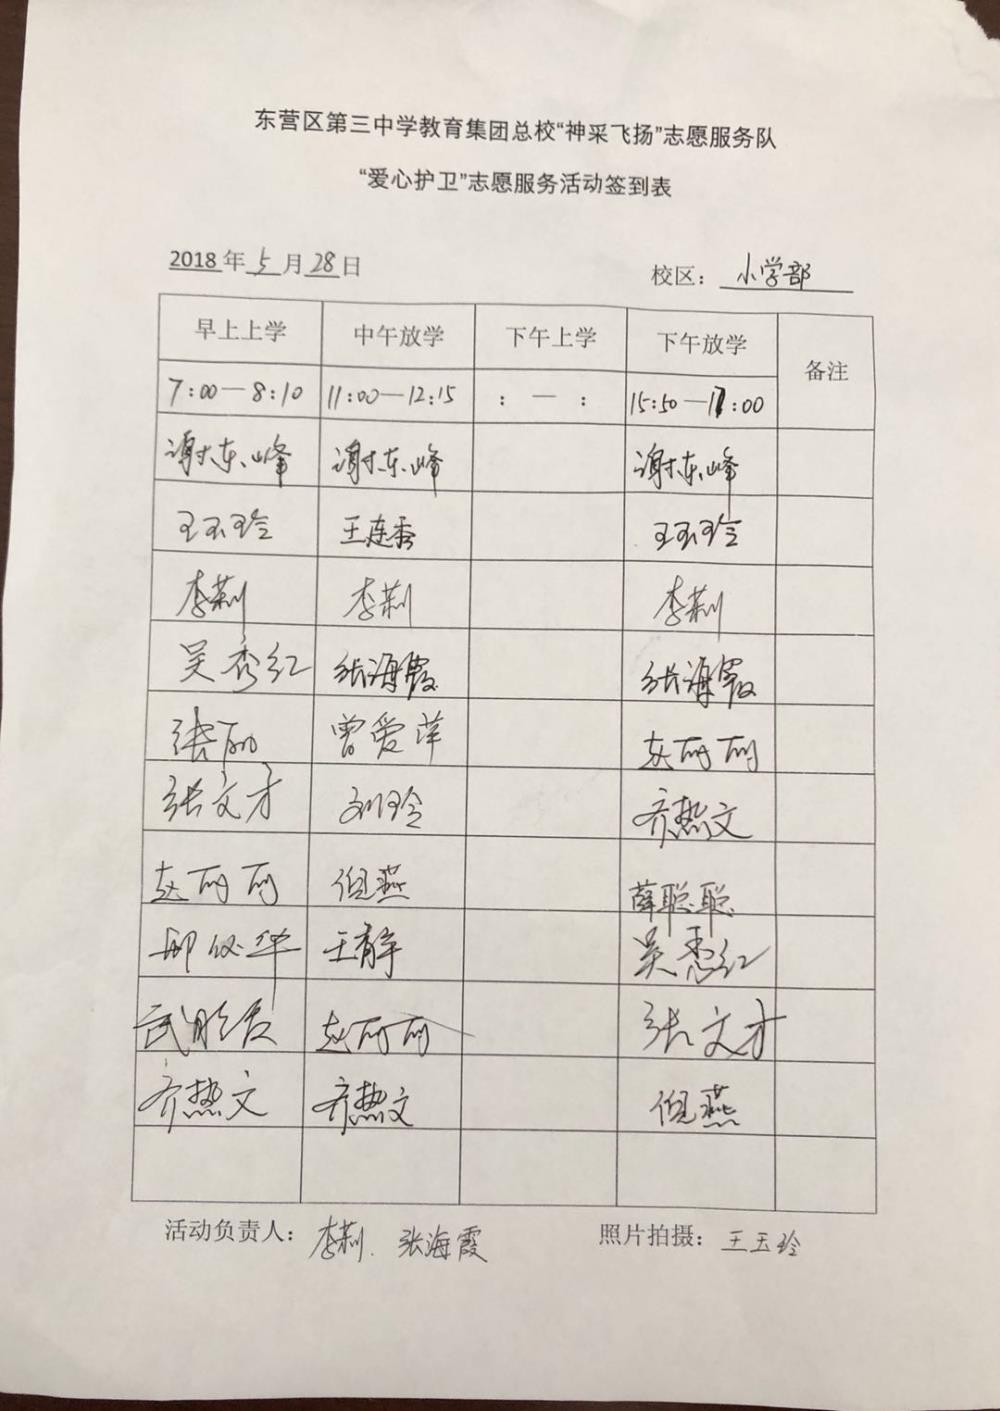 东营区第三中学教育集团总校“神采飞扬”志愿服务队
“爱心护卫”志愿服务活动签到表
2018年5月28日 校区：小学部
早上上学 中午放学 下午上学 下午放学 备注
7:00—8:10 11:00—12:15 : — : 15:50—17:00
谢东峰 谢东峰 谢东峰
王玉玲 王连秀 王玉玲
李莉 李莉 李莉
吴秀红 张海霞 张海霞
张丽 曾爱萍 赵丽丽
张文才 刘玲 齐热文
赵丽丽 倪燕 薛聪聪
王静 吴秀红
赵丽丽 张文才
齐热文 齐热文 倪燕
活动负责人：李莉、张海霞 照片拍摄：王玉玲